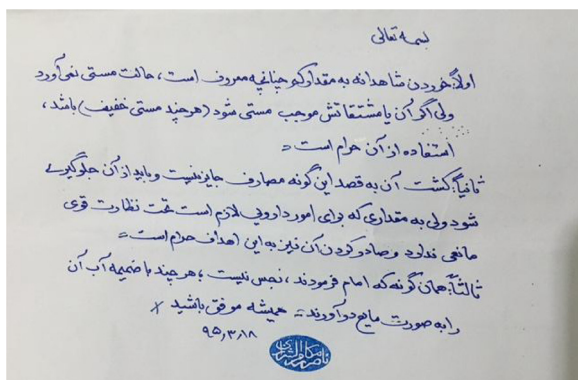 بسمه تعالی
اولاً: خوردن شاهدانه به مقدار کم چنانچه معروف است، حالت مستی نمی‌آورد
ولی اگر آن یا مشتقاتش موجب مستی شود (هر چند مستی خفیف) باشد،
استفاده از آن حرام است.
ثانیاً: کشت آن به قصد این گونه مصارف جایز نیست و باید از آن جلوگیری
شود ولی به مقداری که برای امور دارویی لازم است تحت نظارت قوی
مانعی ندارد و صادر کردن آن نیز به این اهداف حرام است =
ثالثاً: همان گونه که امام فرمودند، نجس نیست؛ هر چند با ضمیمه آب آن
را به صورت مایع درآورند = همیشه موفق باشید
۹۵,۳,۱۸
ناصر مکارم الشیرازی